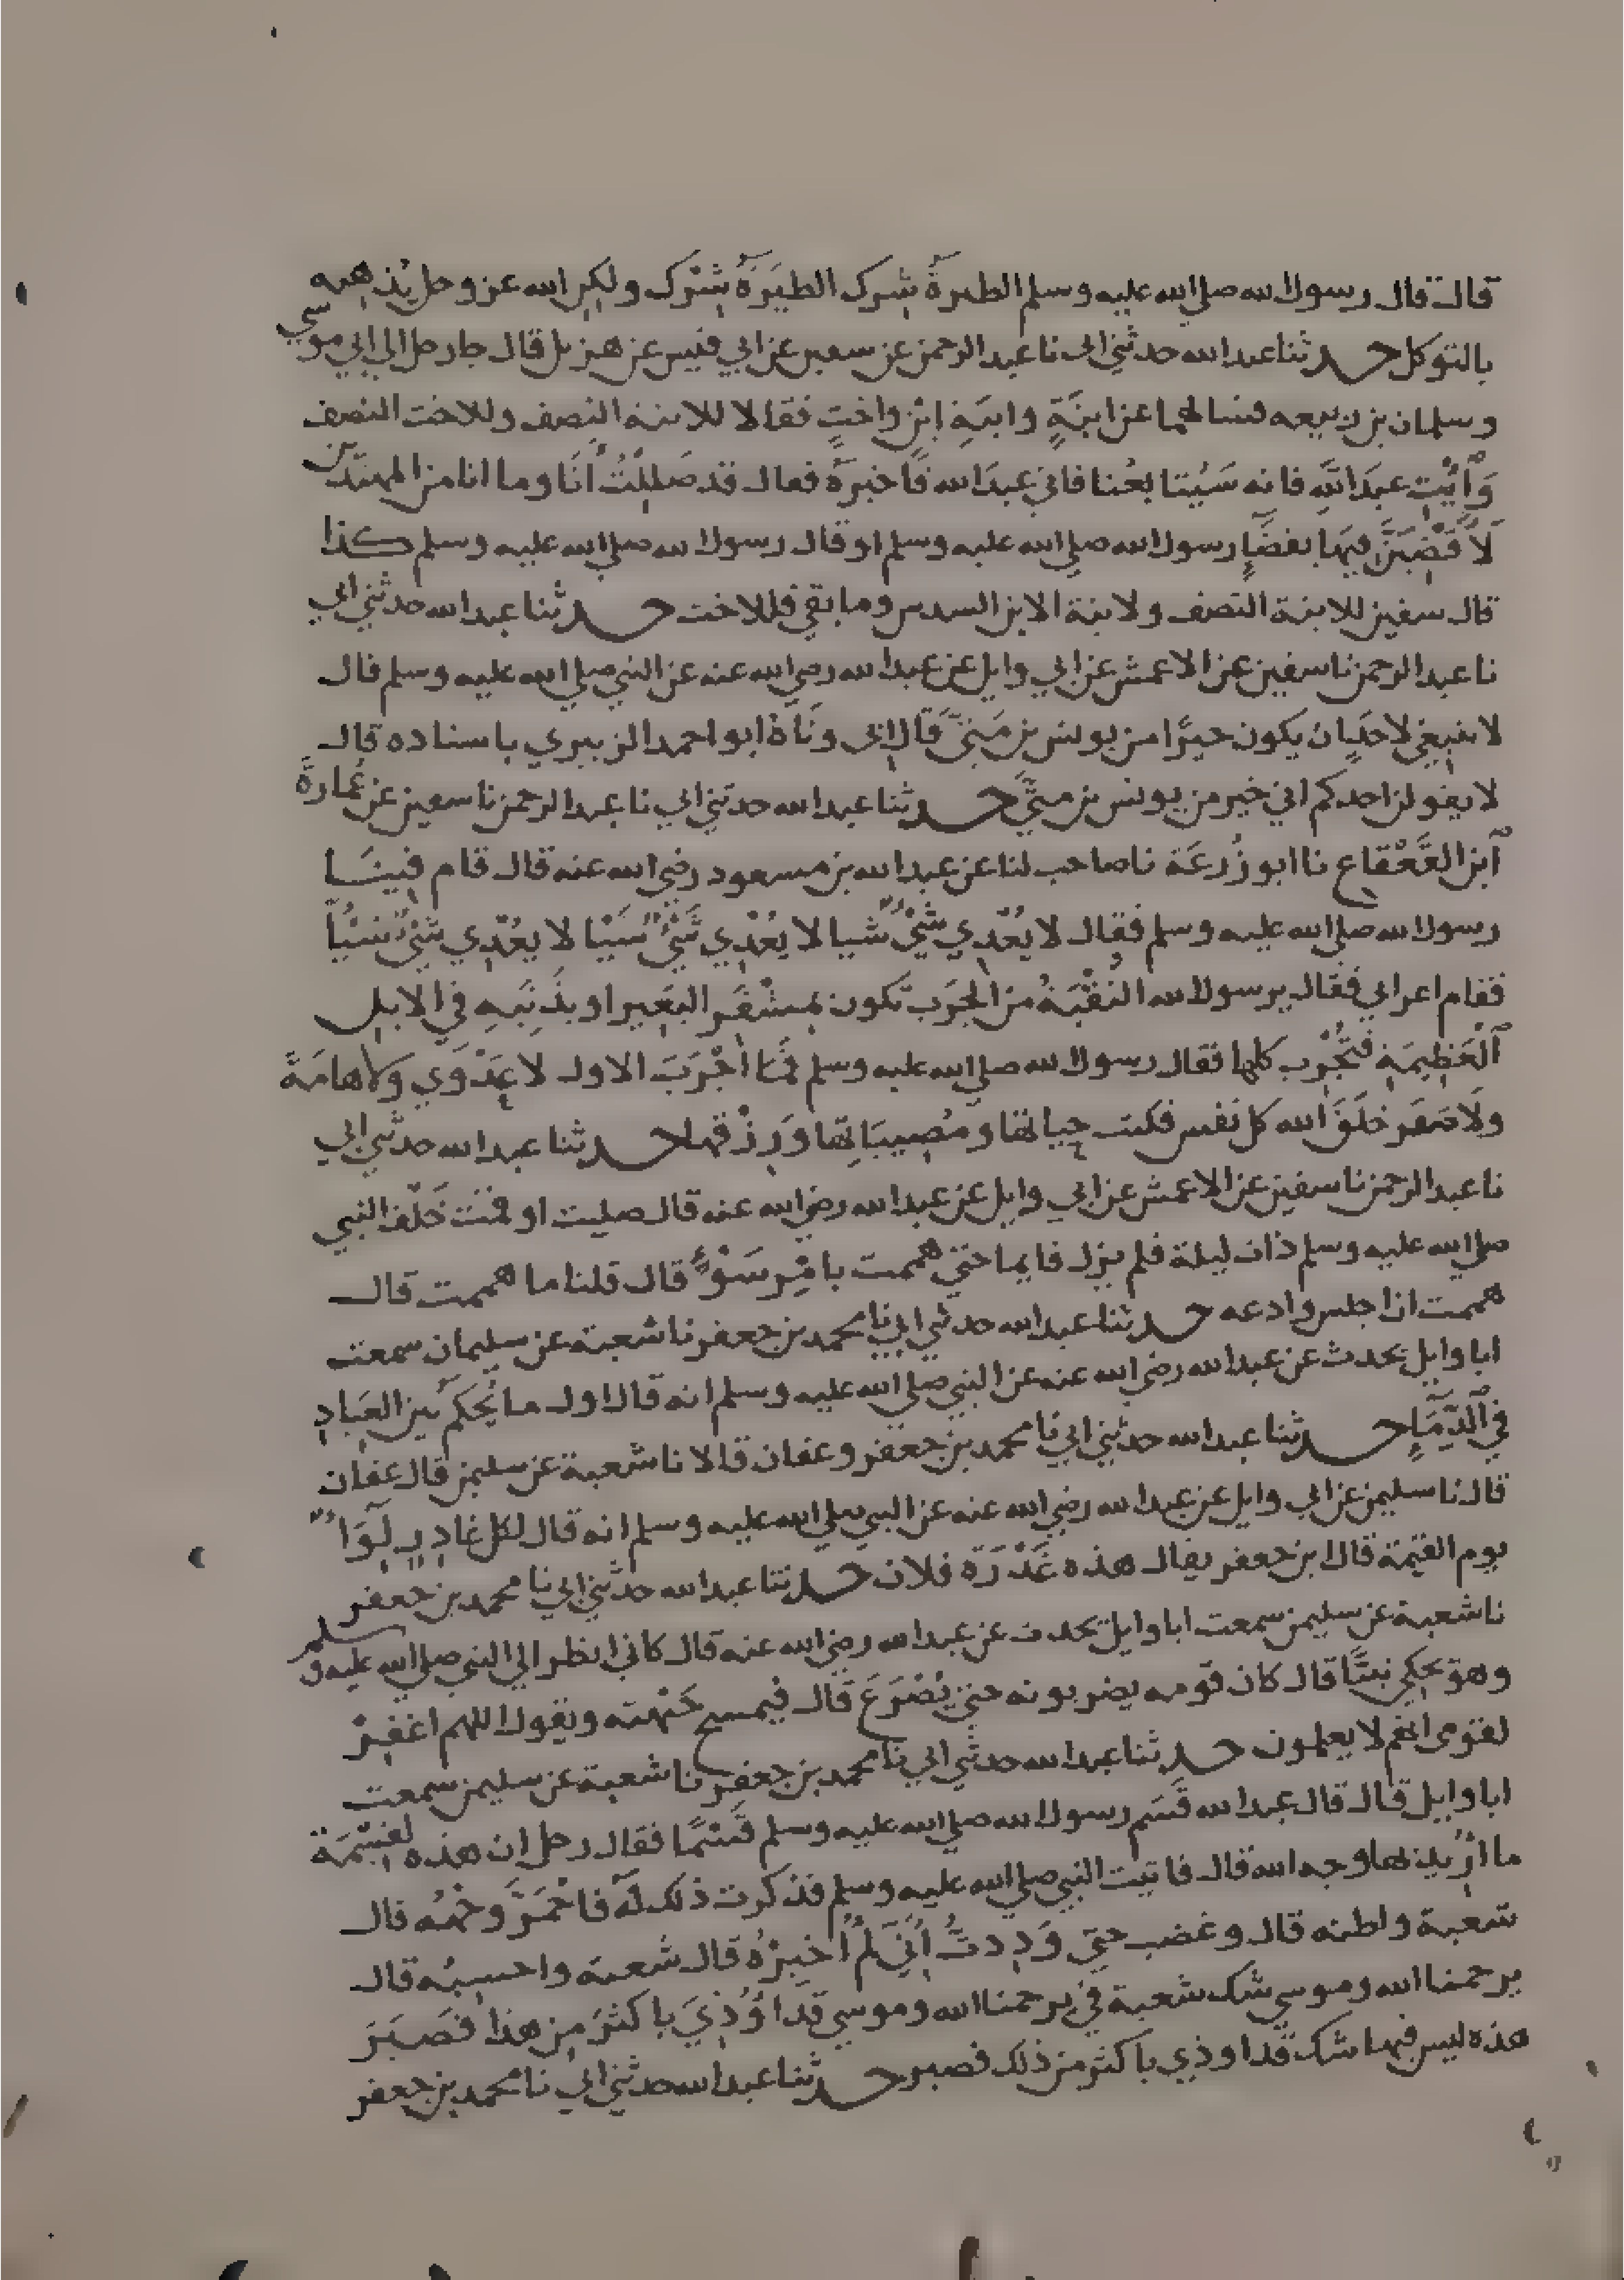 قال قال رسول الله صلى الله عليه وسلم الطيرة شرك الطيَرَة شِرْك ولكن الله عز وجل يُذهبه
بالتوكل حدثنا عبد الله حدثني ابي نا عبد الرحمن عن سفين عن ابي قيس عن هزيل قال جا رجل الى ابي موسي
وسلمان بن ربيعه فسالهما عن ابنَةٍ وابنَةِ ابْنٍ واختٍ فقالا للابنة النِصف وللاخت النصف
وَأْتِ عبدَ اللهِ فانه سَيُتابعُنا فاتي عبدَ الله فَاخبرَهُ فقال قد ضَلَلْتُ اِذًا وما انا من المهتدين
لَاَقْضِيَنَّ فيهَا بقضَاءِ رسول الله صلى الله عليه وسلم او قال رسول الله صلى الله عليه وسلم كذا
قال سفين للابنة النصف ولابنة الابن السدس وما بقي فللاخت حدثنا عبد الله حدثني ابي
نا عبد الرحمن نا سفين عن الاعمش عن ابي وايل عن عبد الله رضي الله عنه عن النبي صلى الله عليه وسلم قال
لا ينبغي لاحَدٍ ان يكون خيرًا من يونس بن مَتَّي قال ابي ونَاهُ ابو احمد الزبيري باسناده قال
لا يقولن احدكم اني خير من يونس بن متَّي حدثنا عبد الله حدثني ابي نا عبد الرحمن نا سفين عن عُمارةَ
ابن القَعْقاع نا ابو زُرعَة نا صاحب لنا عن عبد الله بن مسعود رضي الله عنه قال قام فينَا
رسول الله صلى الله عليه وسلم فقال لا يُعْدِي شَيْءٌ شيا لا يُعْدِي شَيْءٌ شَيْا لا يعْدِي شَيْءٌ شَيْاً
فقام اعرابي فقال يرسول الله النُقْبَةُ من الجرَب تكون بمِشْفَرِ البَعِير او بذَنَبِهِ في الابل
الْعَظِيمَةِ فتَجْرَب كلها فقال رسول الله صلى الله عليه وسلم فمَا اَجْرَبَ الاول لا عَدْوَي ولا هَامَةَ
ولَا صَفَر خلَقَ الله كل نَفس فكتب حياتها ومُصِيبَاتِها ورِزْقها حدثنا عبد الله حدثني ابي
نا عبد الرحمن نا سفين عن الاعمش عن ابي وايل عن عبد الله رضي الله عنه قال صليت او قمت خَلْف النبي
صلى الله عليه وسلم ذات ليلة فلم يزل قايما حتي هممت بامْرِ سَوْءٍ قال قلنا ما هممت قال
هممت ان اجلس وادعه حدثنا عبد الله حدثني ابي نا محمد بن جعفر نا شعبة عن سليمان سمعت
ابا وايل يحدث عن عبد الله رضي الله عنه عن النبي صلى الله عليه وسلم انه قال اول ما يُحكَم بَين العبَادِ
في الدِّمَاءِ حدثنا عبد الله حدثني ابي نا محمد بن جعفر وعفان قالا نا شعبة عن سليمن قال عفان
قال نا سليمن عن ابي وايل عن عبد الله رضي الله عنه عن النبي صلى الله عليه وسلم انه قال لكل غادِرٍ لِوَاءٌ
يوم القيمة قال ابن جعفر يقال هذه غَدْرَة فلان حدثنا عبد الله حدثني ابي نا محمد بن جعفر
نا شعبة عن سليمن سمعت ابا وايل يحدث عن عبد الله رضي الله عنه قال كاني انظر الي النبي صلى الله عليه وسلم
وهو يحكي نبيًّا قال كان قومه يضربونه حتي يُصْرَعَ قال فيمسح جَبْهته ويقول اللهم اغفِرْ
لقومي انهم لا يعلمون حدثنا عبد الله حدثني ابي نا محمد بن جعفر نا شعبة عن سليمن سمعت
ابا وايل قال قال عبد الله قَسَم رسول الله صلى الله عليه وسلم قَسْمًا فقال رجل ان هذه لقِسْمَة
ما اُرِيد بها وجه الله قال فاتيت النبي صلى الله عليه وسلم فذكرت ذلك لَهُ فاحْمَرَّ وَجْهُه قال
شعبة واظنه قال وغضب حتي وَدِدتُّ اَنِّي لَمْ اُخبِرْهُ قال شعبة واحسِبُه قال
يرحمنا الله وموسي شك شعبة في يرحمنا الله وموسي قَد اُوذِيَ باكثرَ مِن هذا فصَبَرَ
هذه ليس فيها شك قد اوذي باكثر من ذلك فصبر حدثنا عبد الله حدثني ابي نا محمد بن جعفر